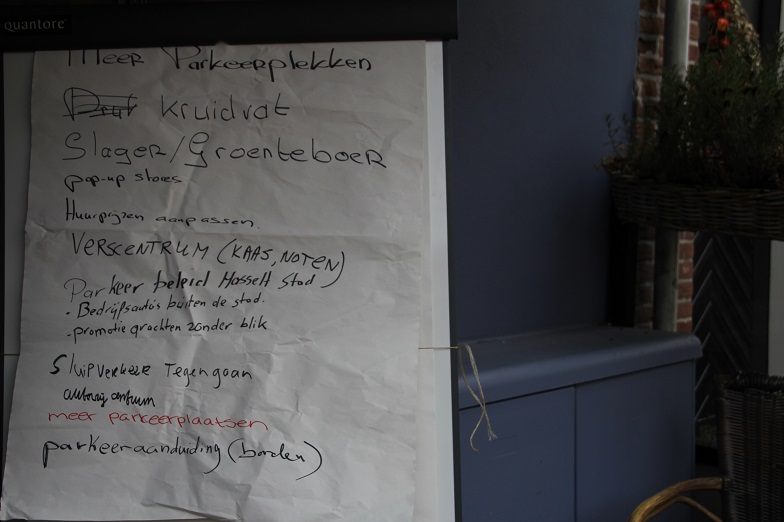 quantore
Meer Parkeerplekken
Kruidvat
Slager/Groenteboer
pop-up stores
Huurprijzen aanpassen.
VERSCENTRUM (KAAS, NOTEN)
Parkeer beleid Hasselt Stad
• Bedrijfsauto's buiten de stad.
- promotie grachten zonder blik
Sluipverkeer Tegengaan
autovrij centrum
meer parkeerplaatsen
parkeeraanduiding (borden)